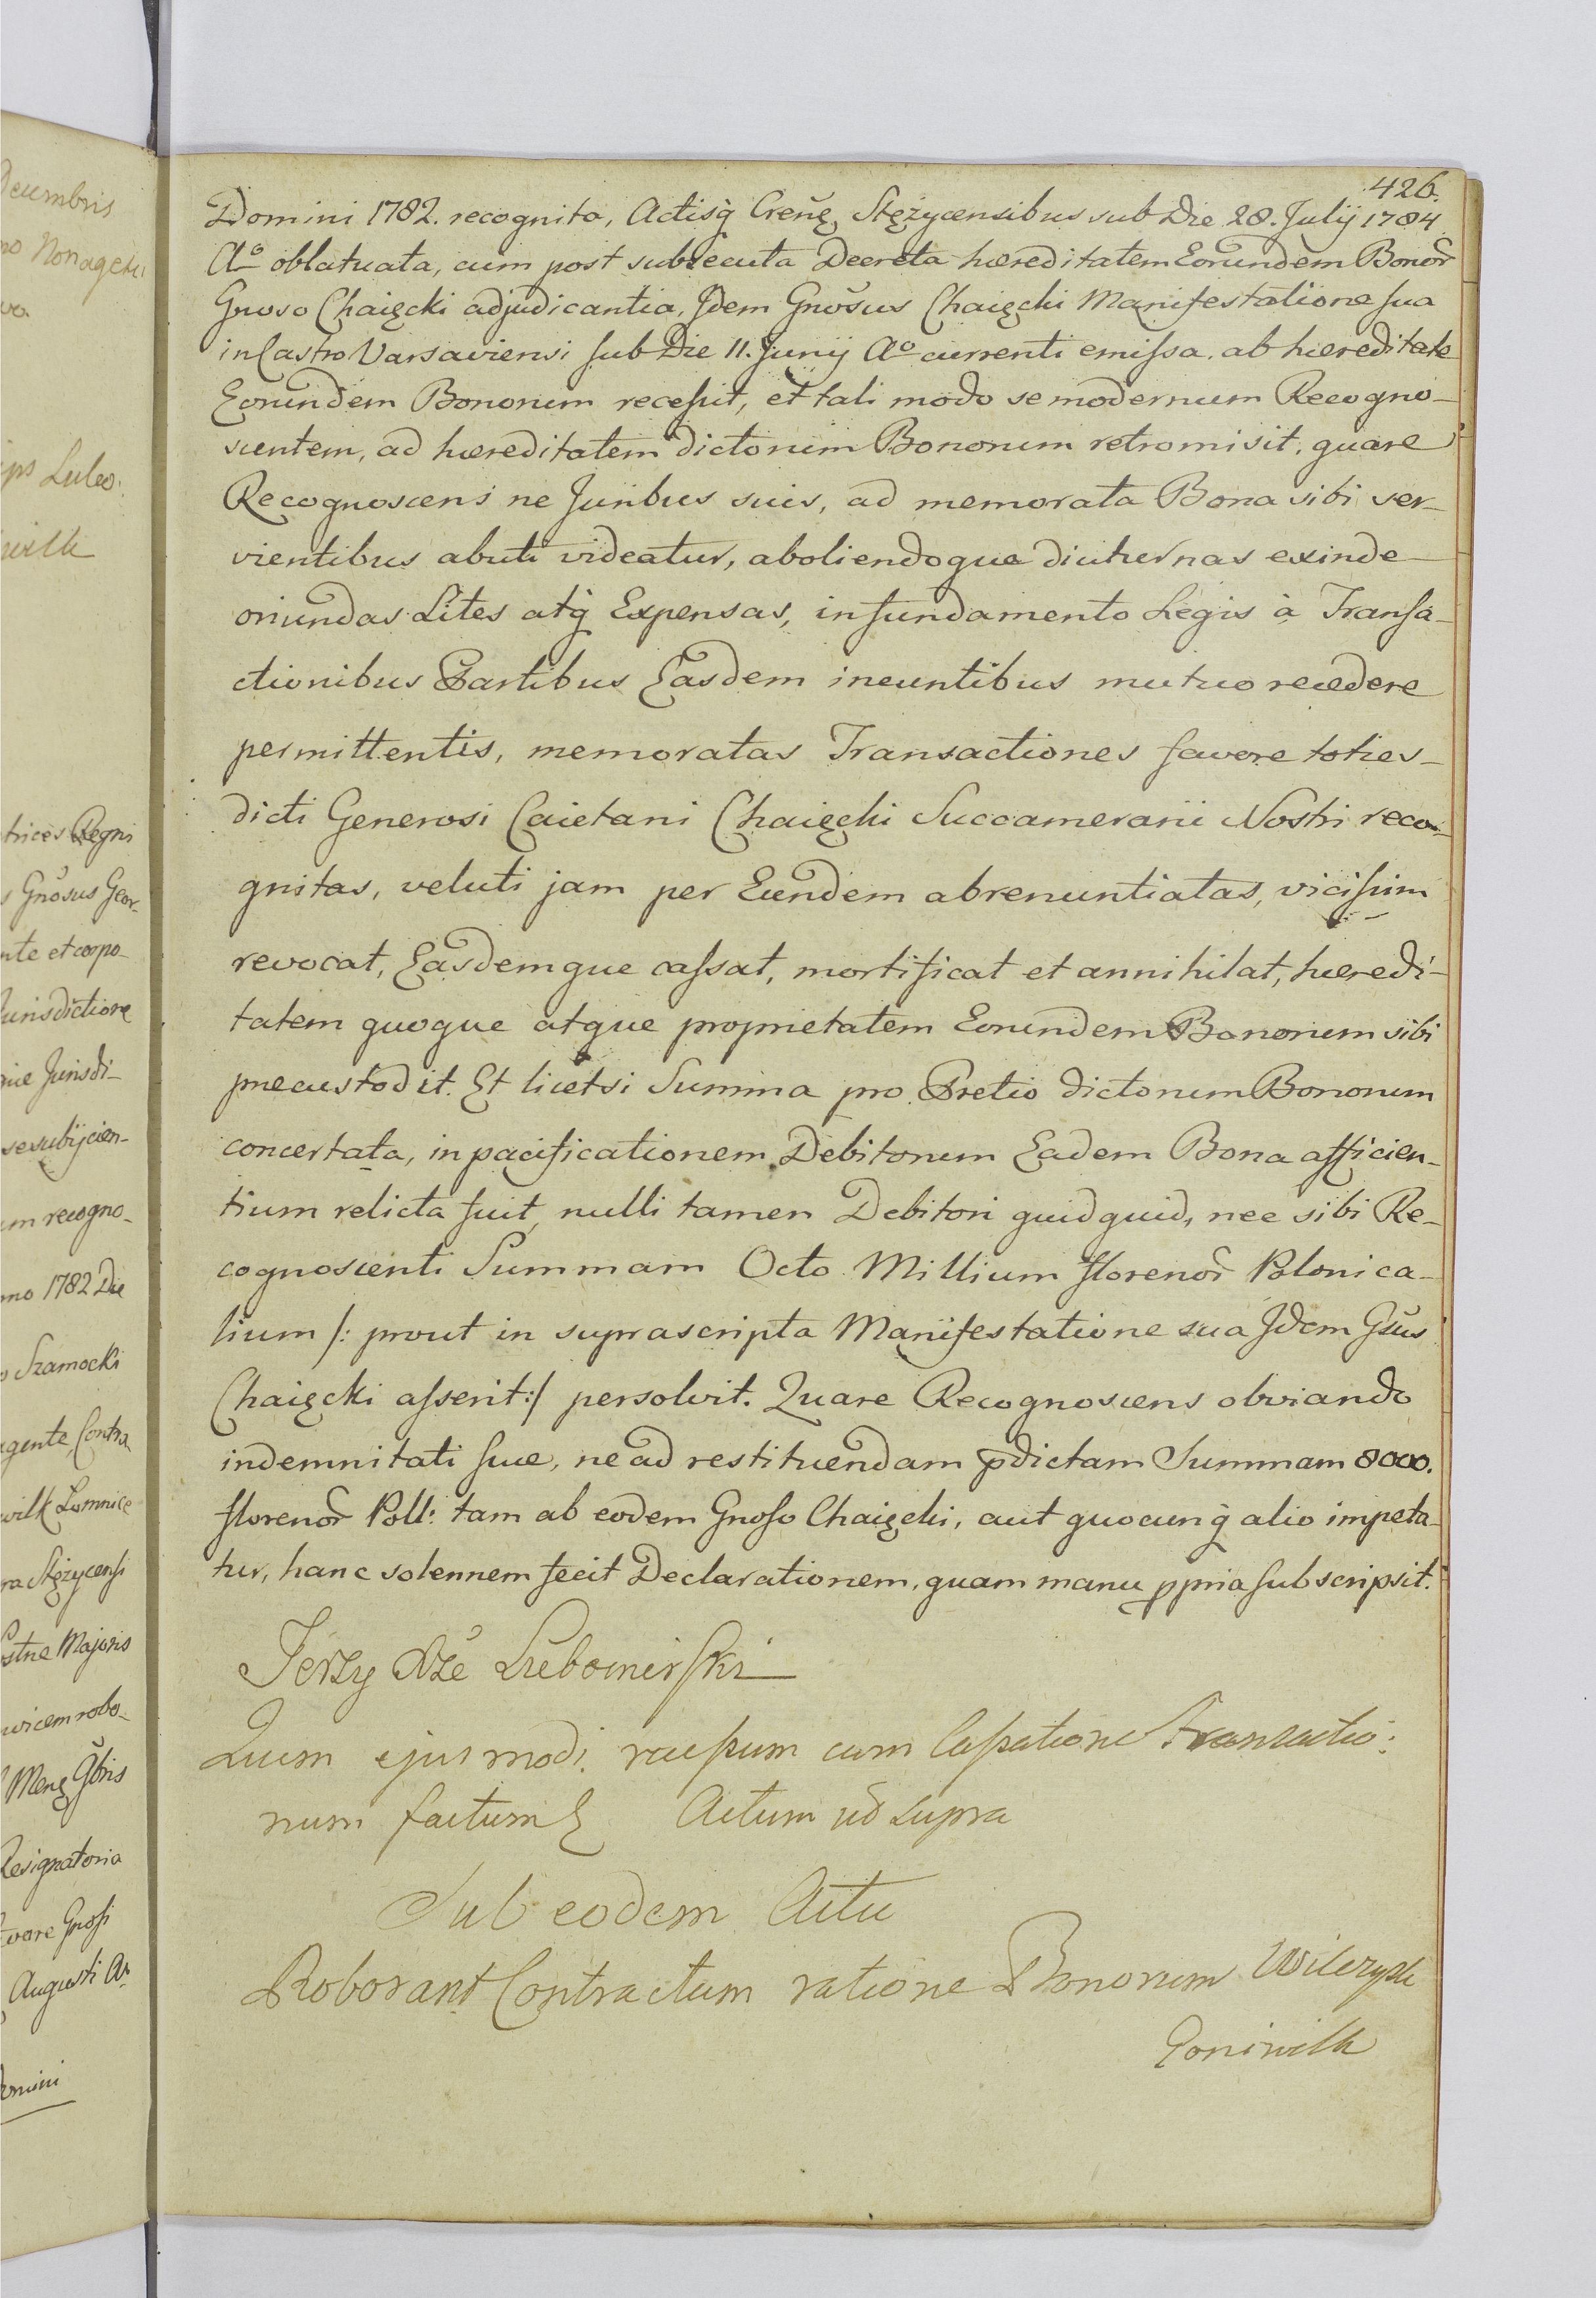 426.
Domini 1782. recognita, Actisq̃ Creñę Stężycensibus sub Die 28. Julij 1784
Aº oblatuata, cum post subsecuta Decreta hæreditatem Eorundem Bonor̃
Gnoso Chaięcki adjudicantia, Jdem Gnõsus Chaięcki Manifestatione sua
in Castro Varsaviensi sub Die 11. Junij Aº currenti emissa, ab hæreditate
Eorundem Bonorum recessit, et tali modo se modernum Recogno-
scentem, ad hæreditatem dictorum Bonorum retromisit, quare
Recognoscens ne Juribus suis, ad memorata Bona sibi ser-
vientibus abuti videatur, aboliendoque diuturnas exinde
oriundas Lites atq̃ Expensas, in fundamento Legis à Transa-
ctionibus Partibus Easdem ineuntibus mutuo recedere
permittentis, memoratas Transactiones favore toties-
dicti Generosi Caietani Chaięcki Succamerarii Nostri reco-
gnitas, veluti jam per Eundem abrenuntiatas, vicissim
revocat, Easdemque cassat, mortificat et annihilat, hæredi-
tatem quoque atque proprietatem Eorundem Bonorum sibi
præcustodit. Et licetsi Summa pro Pretio dictorum Bonorum
concertata, in pacificationem Debitorum Eadem Bona afficien-
tium relicta fuit, nulli tamen Debitori quidquid, nec sibi Re-
cognoscenti Summam Octo Millium florenor̃ Polonica-
lium /: prout in suprascripta Manifestatione sua Jdem Gsus
Chaięcki asserit :/ persolvit. Quare Recognoscens obviando
indemnitati suæ, ne ad restituendam p̃dictam Summam 8000.
florenor̃ Poll: tam ab eodem Gnoso Chaięcki, aut quocunq̃ alio impeta-
tur, hanc solennem fecit Declarationem, quam manu ppria subscripsit.
Jerzy Xże Lubomirski
Quem ejusmodi recessum cum Cassatione Transactio:
num factum Actum ut supra
Sub eodem Actu
Roborant Contractum ratione Bonorum Wilczysk
Goniwilk